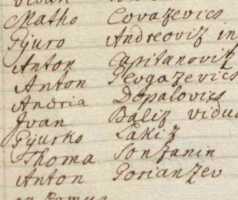 Matho Covazevics
Gjuro Andreoviz in
Anton Capitanovitz
Anton Glogazevics
Andria Dopalovics
Jvan Baliz vidu
Gjurko Lakiz
Thoma Sonzanin
Anton Porianzev